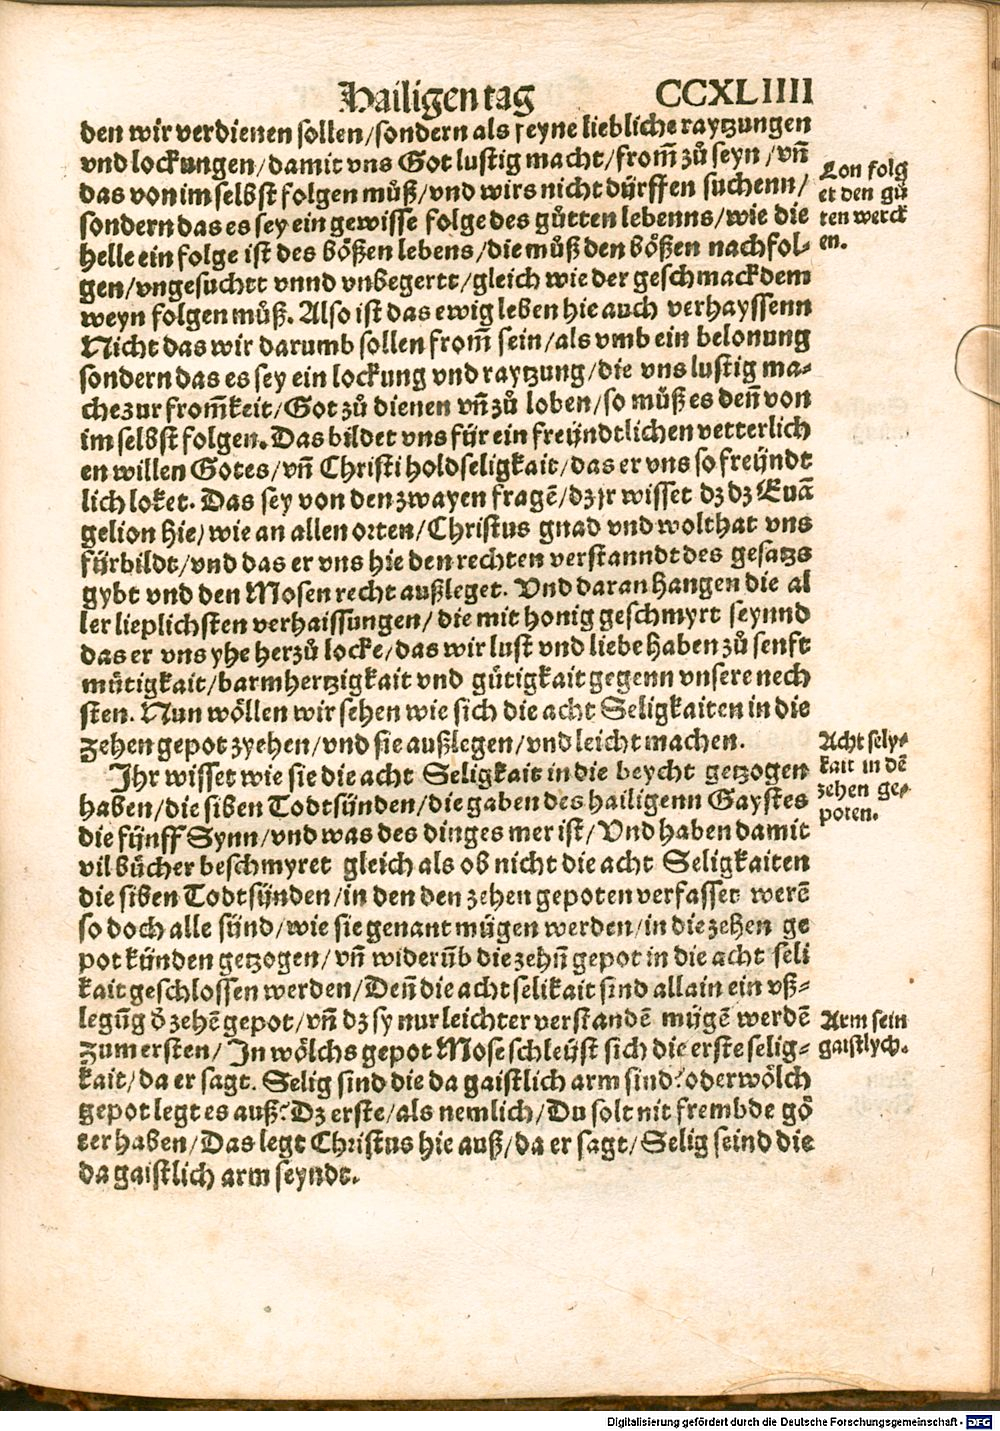 Hailigen tag CCXLIIII
den wir verdienen sollen/sondern als seyne liebliche raytzungen
vnd lockungen/damit vns Got lustig macht/from̄ zů seyn/vn̄
das von im selbst folgen müß/vnd wirs nicht dürffen suchenn/
sondern das es sey ein gewisse folge des gůtten lebenns/wie die
helle ein folge ist des bößen lebens/die můß den bößen nachfol-
gen/vngesuchtt vnnd vnbegertt/gleich wie der geschmack dem
weyn folgen müß. Also ist das ewig leben hie auch verhayssenn
Nicht das wir darumb sollen from̄ sein/als vmb ein belonung
sondern das es sey ein lockung vnd raytzung/die vns lustig ma-
che zur from̄keit/Got zů dienen vn̄ zů loben/so můß es den̄ von
im selbst folgen. Das bildet vns für ein freündtlichen vetterlich
en willen Gotes/vn̄ Christi holdseligkait/das er vns so freündt
lich loket. Das sey von den zwayen fragē/dz jr wisset dz dz Euā
gelion hie/wie an allen orten/Christus gnad vnd wolthat vns
fürbildt/vnd das er vns hie den rechten verstanndt des gesatzs
gybt vnd den Mosen recht außleget. Vnd daran hangen die al
ler lieplichsten verhaissungen/die mit honig geschmyrt seynnd
das er vns yhe herzů locke/das wir lust vnd liebe haben zů senft
mütigkait/barmhertzigkait vnd gütigkait gegenn vnsere nech
sten. Nun wöllen wir sehen wie sich die acht Seligkaiten in die
zehen gepot zyehen/vnd sie außlegen/vnd leicht machen.
Ihr wisset wie sie die acht Seligkait in die beycht getzogen
haben/die siben Todtsünden/die gaben des hailigenn Gaystes
die fünff Synn/vnd was des dinges mer ist/Vnd haben damit
vil bücher beschmyret gleich als ob nicht die acht Seligkaiten
die siben Todtsünden/in den den zehen gepoten verfasset werē
so doch alle sünd/wie sie genant mügen werden/in die zehen ge
pot künden getzogen/vn̄ widerūb die zehn̄ gepot in die acht seli
kait geschlossen werden/Den̄ die acht selikait sind allain ein vß-
legūg d̄ zehē gepot/vn̄ dz sy nur leichter verstandē mügē werdē
Zum ersten/In wölchs gepot Mose schleüst sich die erste selig-
kait/da er sagt. Selig sind die da gaistlich arm sind? oder wölch
gepot legt es auß? Dz erste/als nemlich/Du solt nit frembde gö
ter haben/Das legt Christus hie auß/da er sagt/Selig seind die
da gaistlich arm seyndt.
Lon folg
et den gů
ten werck
en.
Acht sely-
kait in dē
zehen ge-
poten.
Arm sein
gaistlych.
Digitalisierung gefördert durch die Deutsche Forschungsgemeinschaft - DFG